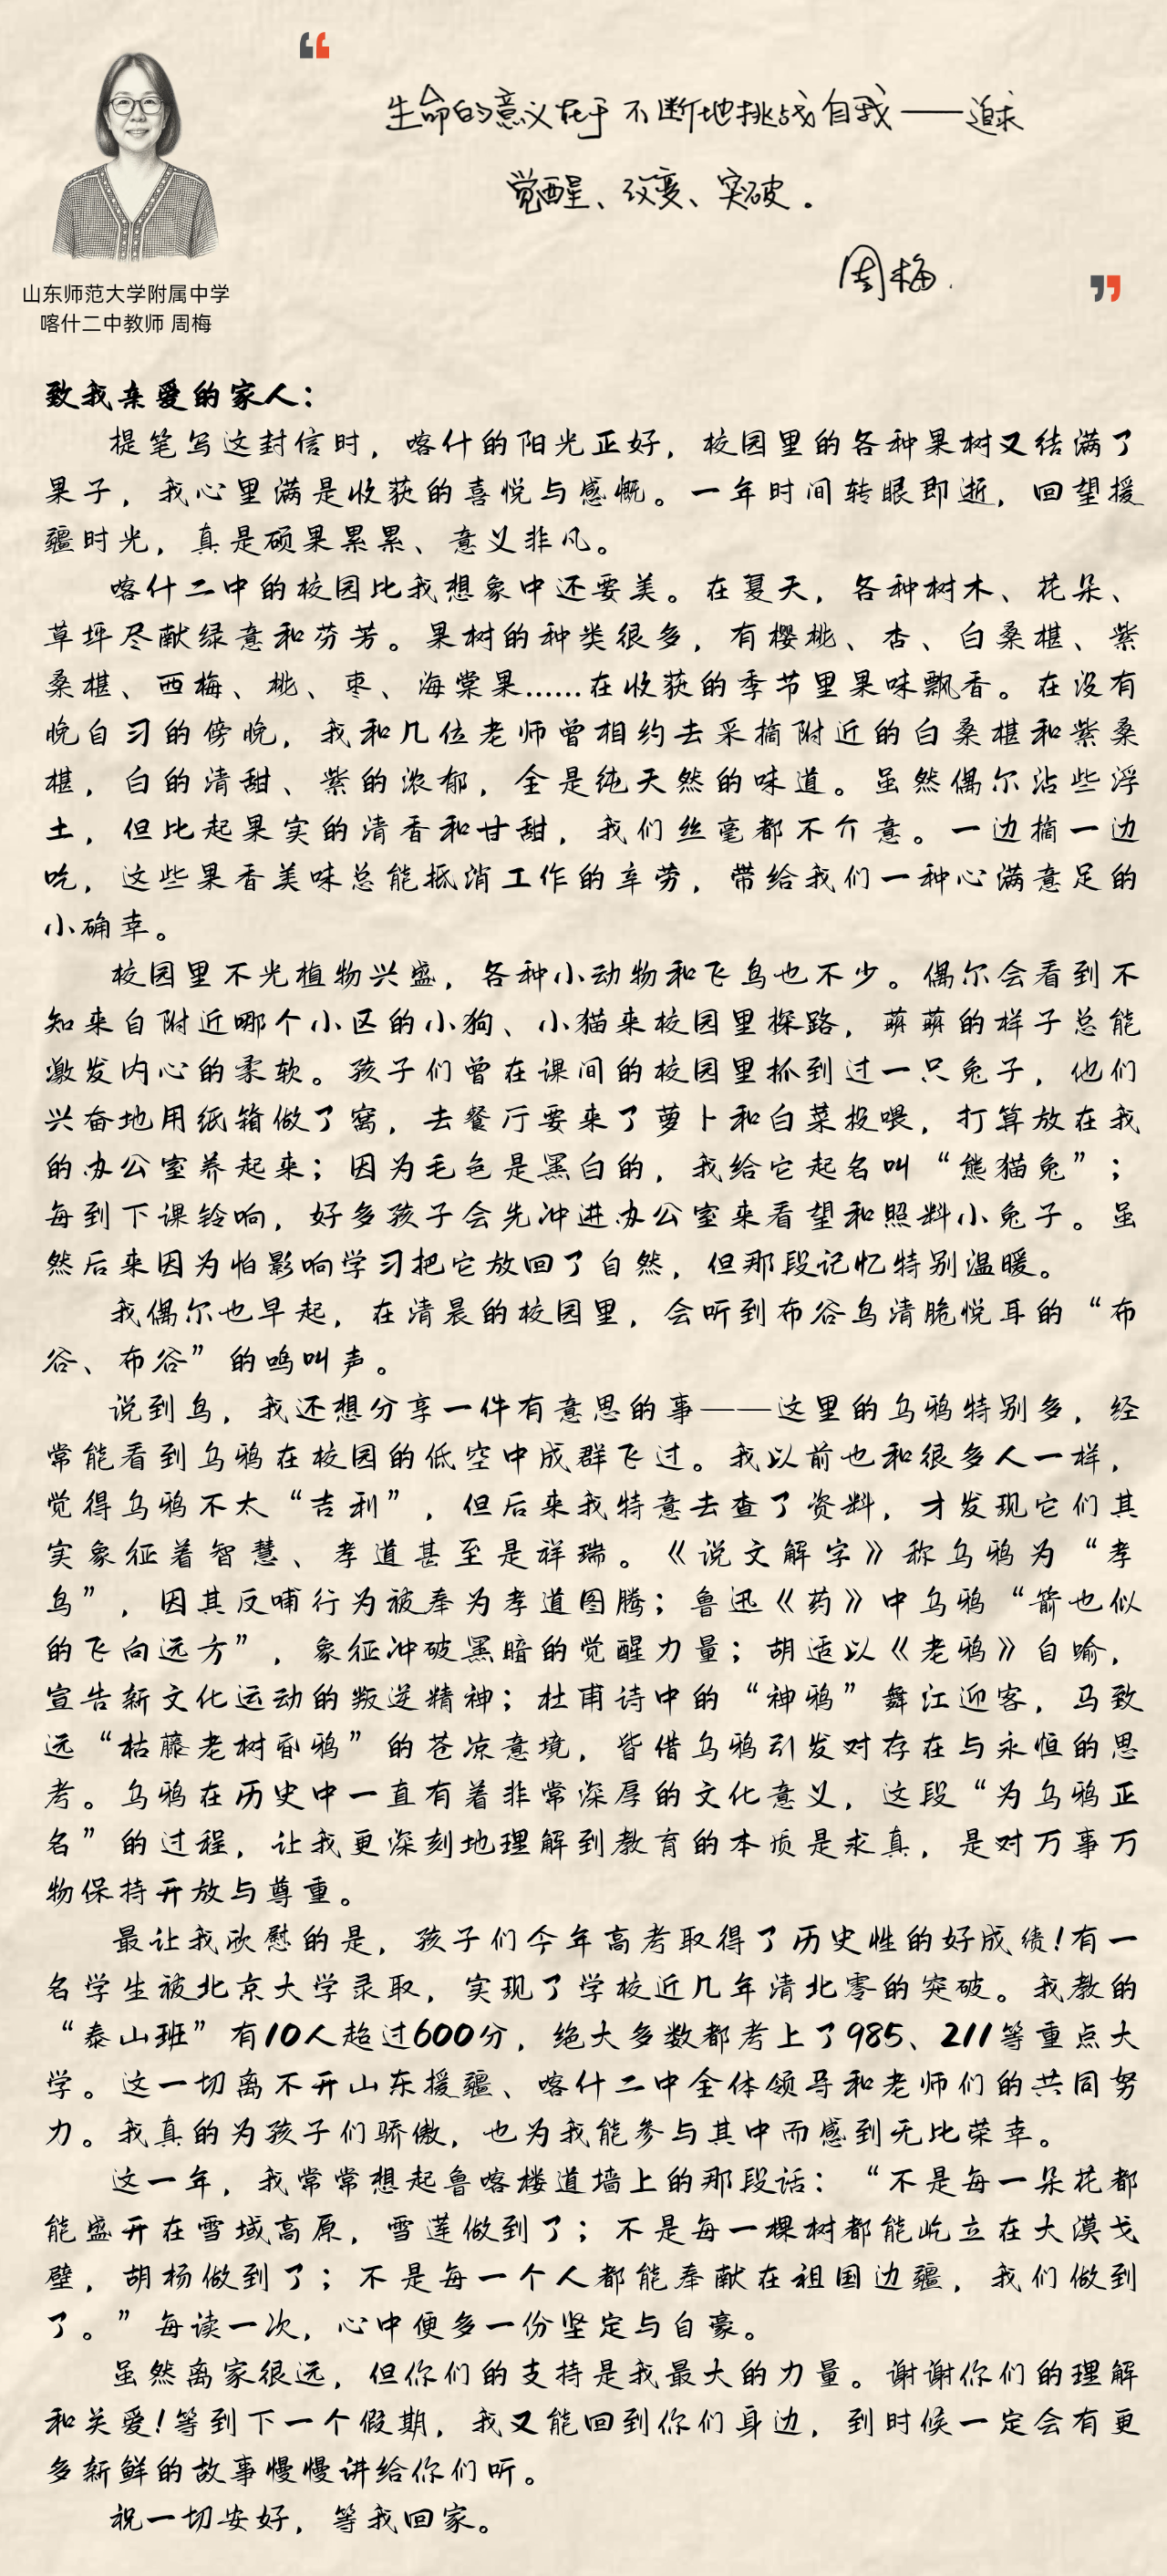 生命的意义在于不断地挑战自我——追求
觉醒、改变、突破。
周梅.
山东师范大学附属中学
喀什二中教师 周梅
致我亲爱的家人：
提笔写这封信时，喀什的阳光正好，校园里的各种果树又结满了
果子，我心里满是收获的喜悦与感慨。一年时间转眼即逝，回望援
疆时光，真是硕果累累、意义非凡。
喀什二中的校园比我想象中还要美。在夏天，各种树木、花朵、
草坪尽献绿意和芬芳。果树的种类很多，有樱桃、杏、白桑椹、紫
桑椹、西梅、桃、枣、海棠果……在收获的季节里果味飘香。在没有
晚自习的傍晚，我和几位老师曾相约去采摘附近的白桑椹和紫桑
椹，白的清甜、紫的浓郁，全是纯天然的味道。虽然偶尔沾些浮
土，但比起果实的清香和甘甜，我们丝毫都不介意。一边摘一边
吃，这些果香美味总能抵消工作的辛劳，带给我们一种心满意足的
小确幸。
校园里不光植物兴盛，各种小动物和飞鸟也不少。偶尔会看到不
知来自附近哪个小区的小狗、小猫来校园里探路，萌萌的样子总能
激发内心的柔软。孩子们曾在课间的校园里抓到过一只兔子，他们
兴奋地用纸箱做了窝，去餐厅要来了萝卜和白菜投喂，打算放在我
的办公室养起来；因为毛色是黑白的，我给它起名叫“熊猫兔”；
每到下课铃响，好多孩子会先冲进办公室来看望和照料小兔子。虽
然后来因为怕影响学习把它放回了自然，但那段记忆特别温暖。
我偶尔也早起，在清晨的校园里，会听到布谷鸟清脆悦耳的“布
谷、布谷”的鸣叫声。
说到鸟，我还想分享一件有意思的事——这里的乌鸦特别多，经
常能看到乌鸦在校园的低空中成群飞过。我以前也和很多人一样，
觉得乌鸦不太“吉利”，但后来我特意去查了资料，才发现它们其
实象征着智慧、孝道甚至是祥瑞。《说文解字》称乌鸦为“孝
鸟”，因其反哺行为被奉为孝道图腾；鲁迅《药》中乌鸦“箭也似
的飞向远方”，象征冲破黑暗的觉醒力量；胡适以《老鸦》自喻，
宣告新文化运动的叛逆精神；杜甫诗中的“神鸦”舞江迎客，马致
远“枯藤老树昏鸦”的苍凉意境，皆借乌鸦引发对存在与永恒的思
考。乌鸦在历史中一直有着非常深厚的文化意义，这段“为乌鸦正
名”的过程，让我更深刻地理解到教育的本质是求真，是对万事万
物保持开放与尊重。
最让我欣慰的是，孩子们今年高考取得了历史性的好成绩！有一
名学生被北京大学录取，实现了学校近几年清北零的突破。我教的
“泰山班”有10人超过600分，绝大多数都考上了985、211等重点大
学。这一切离不开山东援疆、喀什二中全体领导和老师们的共同努
力。我真的为孩子们骄傲，也为我能参与其中而感到无比荣幸。
这一年，我常常想起鲁喀楼道墙上的那段话：“不是每一朵花都
能盛开在雪域高原，雪莲做到了；不是每一棵树都能屹立在大漠戈
壁，胡杨做到了；不是每一个人都能奉献在祖国边疆，我们做到
了。”每读一次，心中便多一份坚定与自豪。
虽然离家很远，但你们的支持是我最大的力量。谢谢你们的理解
和关爱！等到下一个假期，我又能回到你们身边，到时候一定会有更
多新鲜的故事慢慢讲给你们听。
祝一切安好，等我回家。